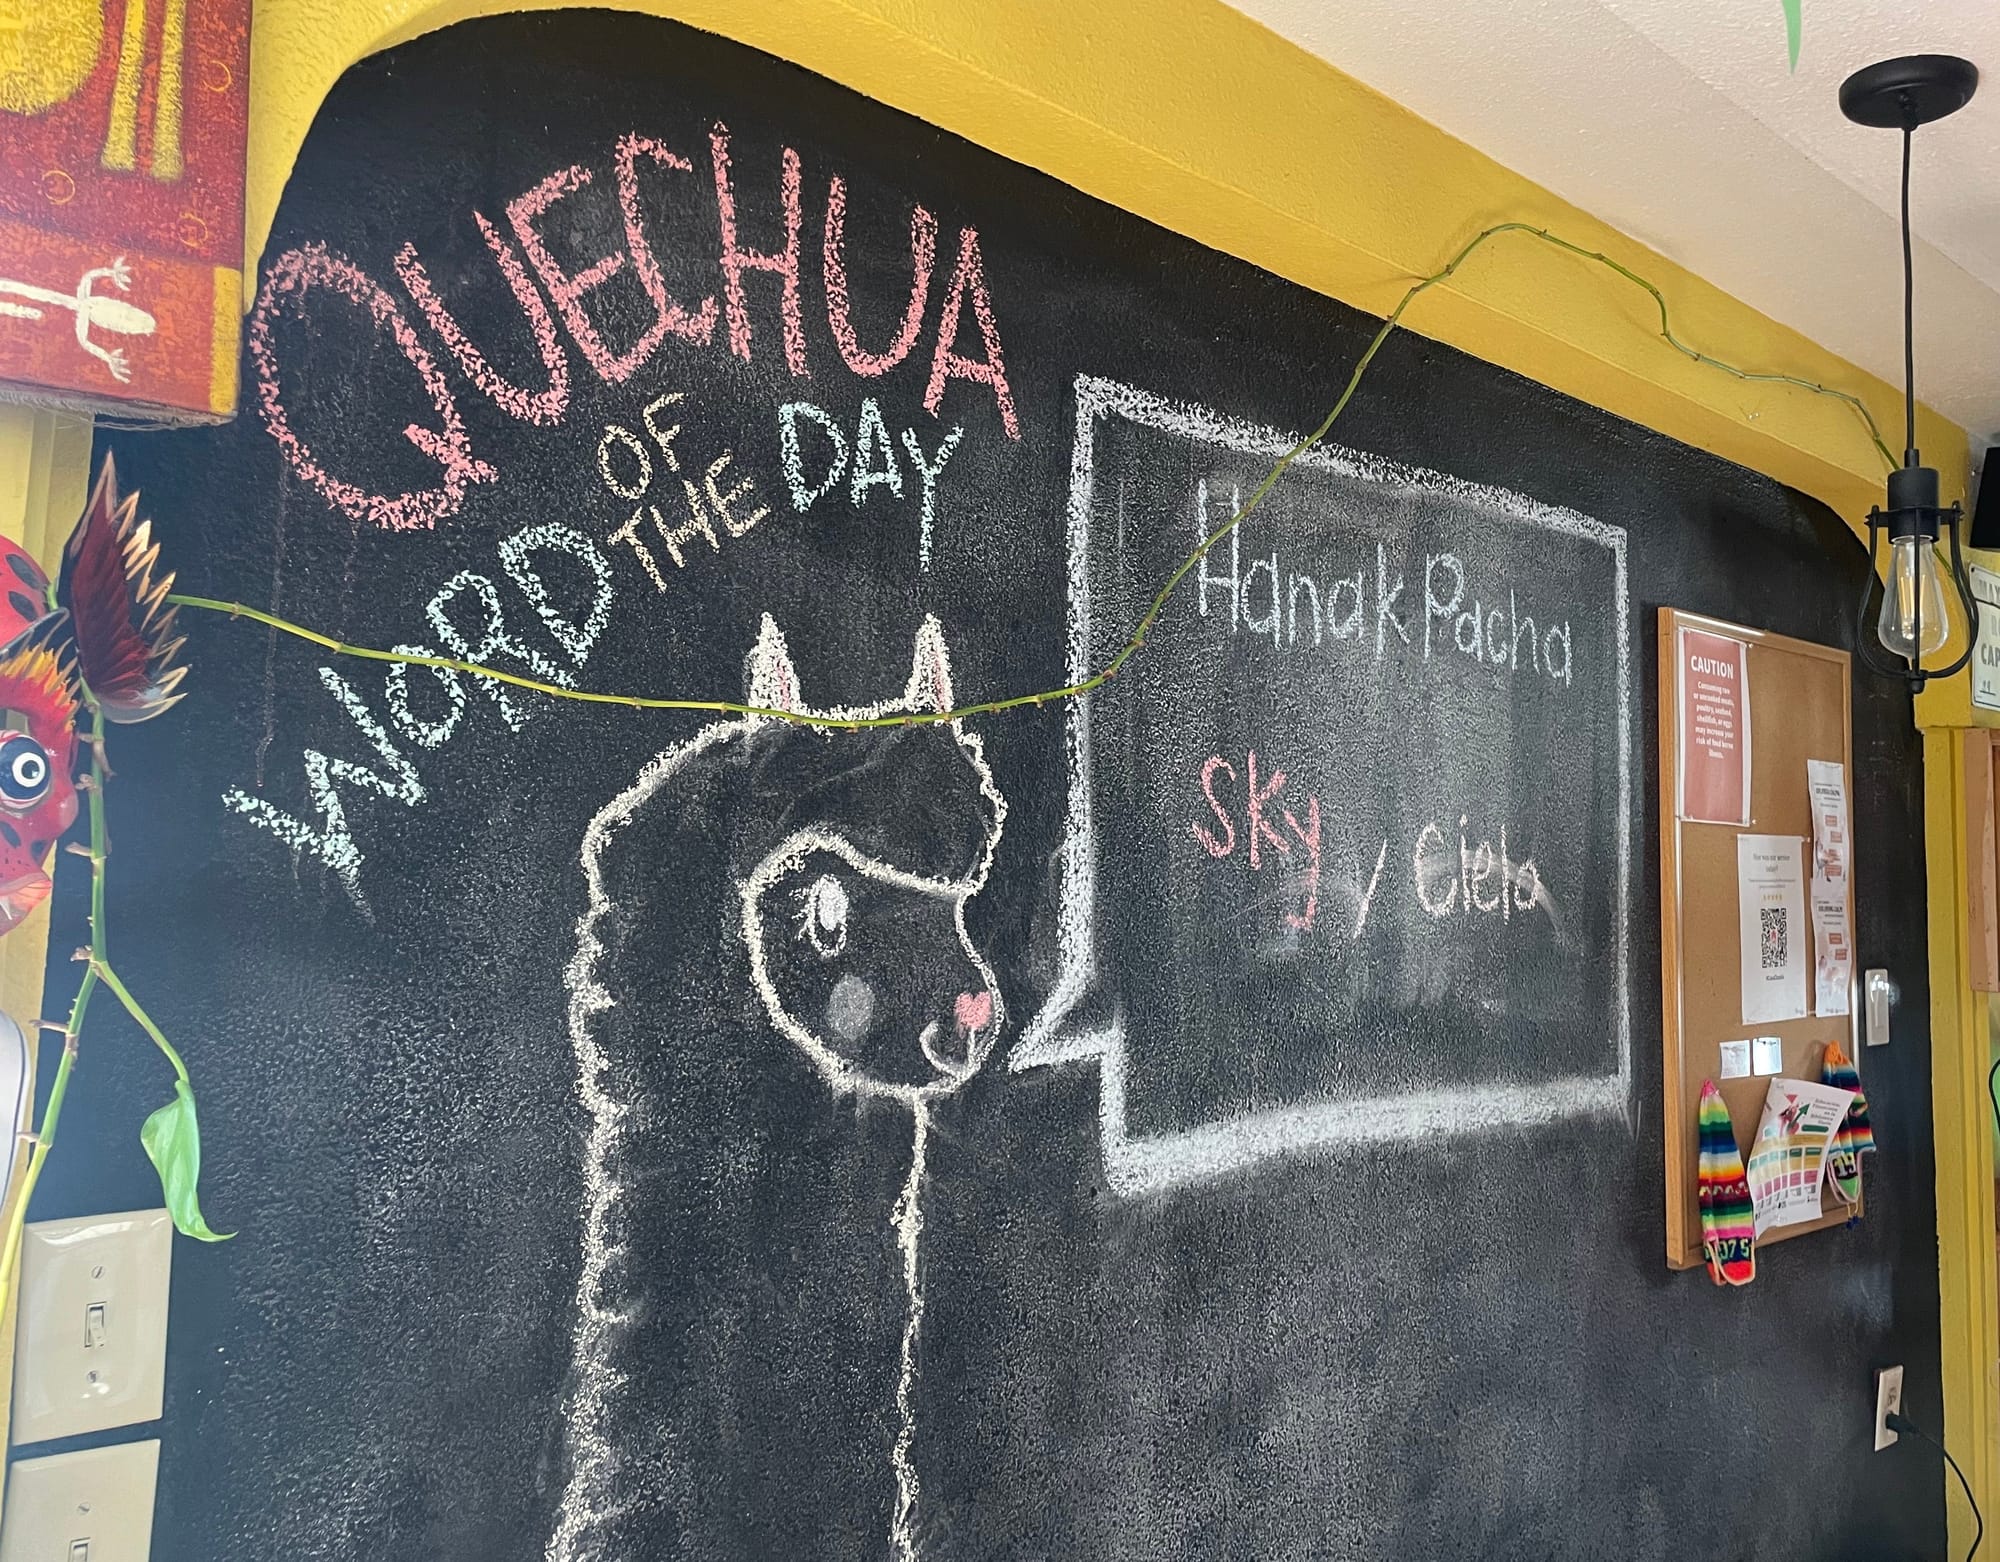 QUECHUA
WORD OF THE DAY
Hanak Pacha
Sky / Cielo
CAUTION
Consuming raw
or uncooked meats,
poultry, seafood,
shellfish, or eggs
may increase your
risk of food borne
illness.
How was our service
today?